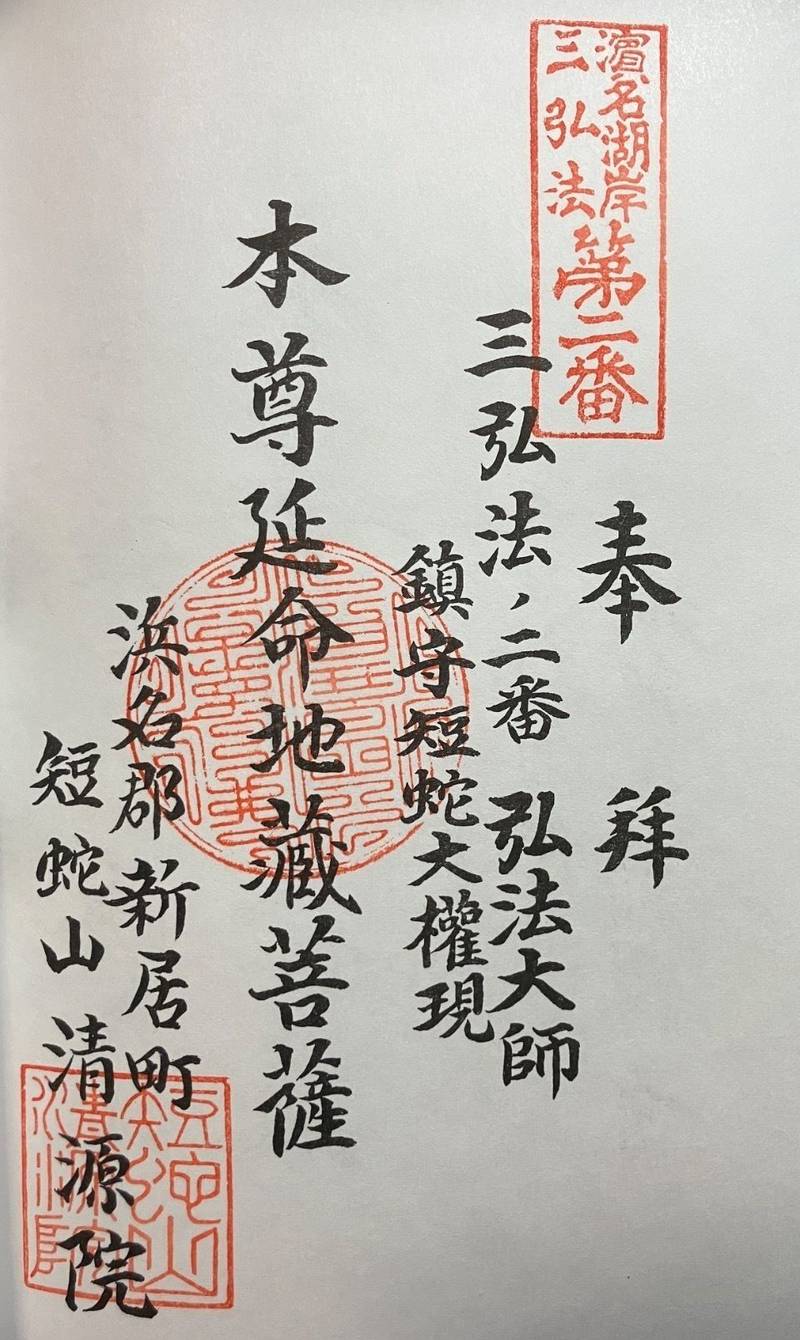 濱名湖岸
三弘法
第二番
奉拜
三弘法ノ二番 弘法大師
鎮守短蛇大權現
本尊延命地藏菩薩
浜名郡新居町
短蛇山清源院
短蛇山
清源院